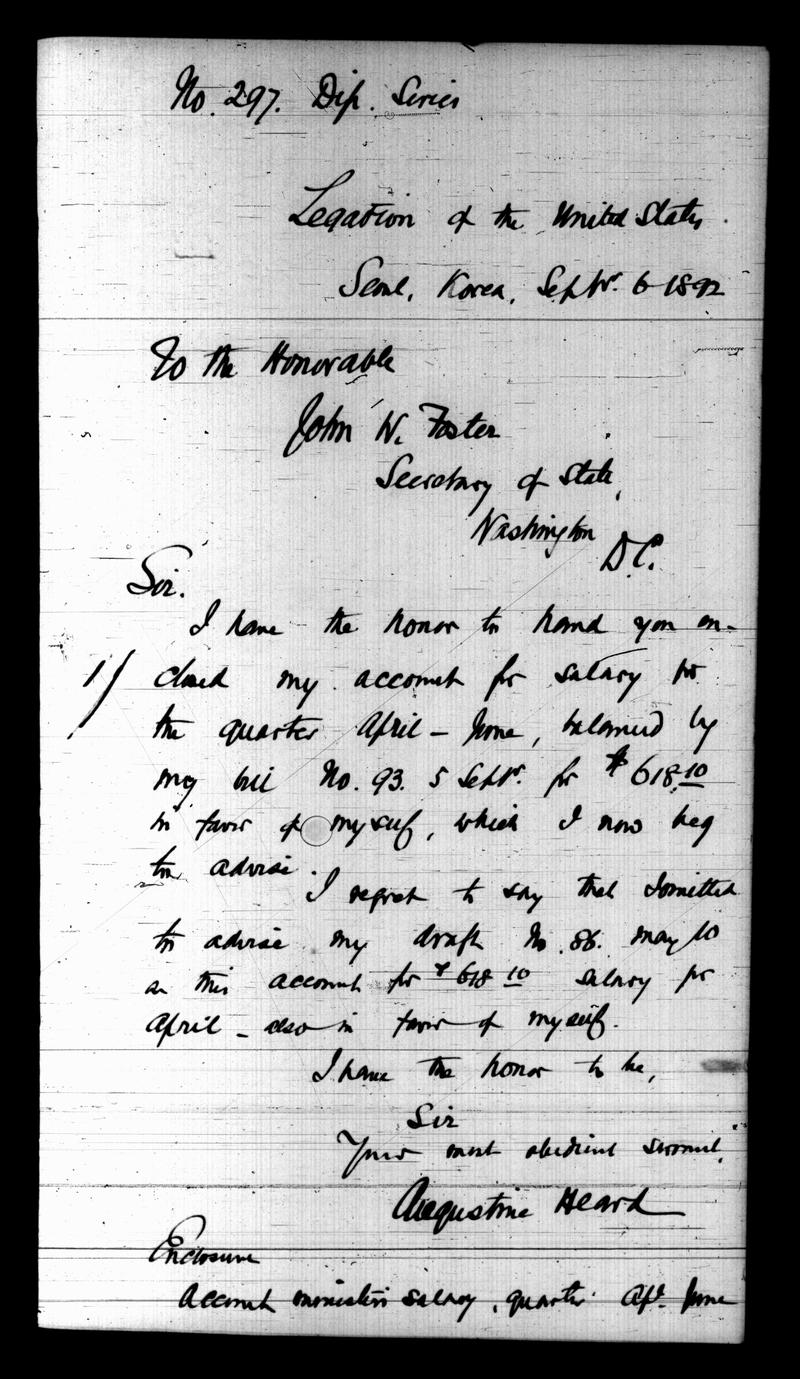 No. 297. Dip. Series
Legation of the United States
Seoul, Korea, Septr. 6 1892
To the Honorable
John W. Foster
Secretary of State,
Washington
D.C.
Sir.
I have the honor to hand you en-
1/ closed my account for salary for
the quarter April - June, balanced by
my bill No. 93. 5 Septr. for $618.10
in favor of myself, which I now beg
to advise.
I regret to say that I omitted
to advise my draft No. 86. May 10
on this account for $618 10 salary for
April - also in favor of myself.
I have the honor to be,
Sir
Your most obedient servant,
Augustine Heard
Enclosure
Account minister's salary, quarter Apl. June